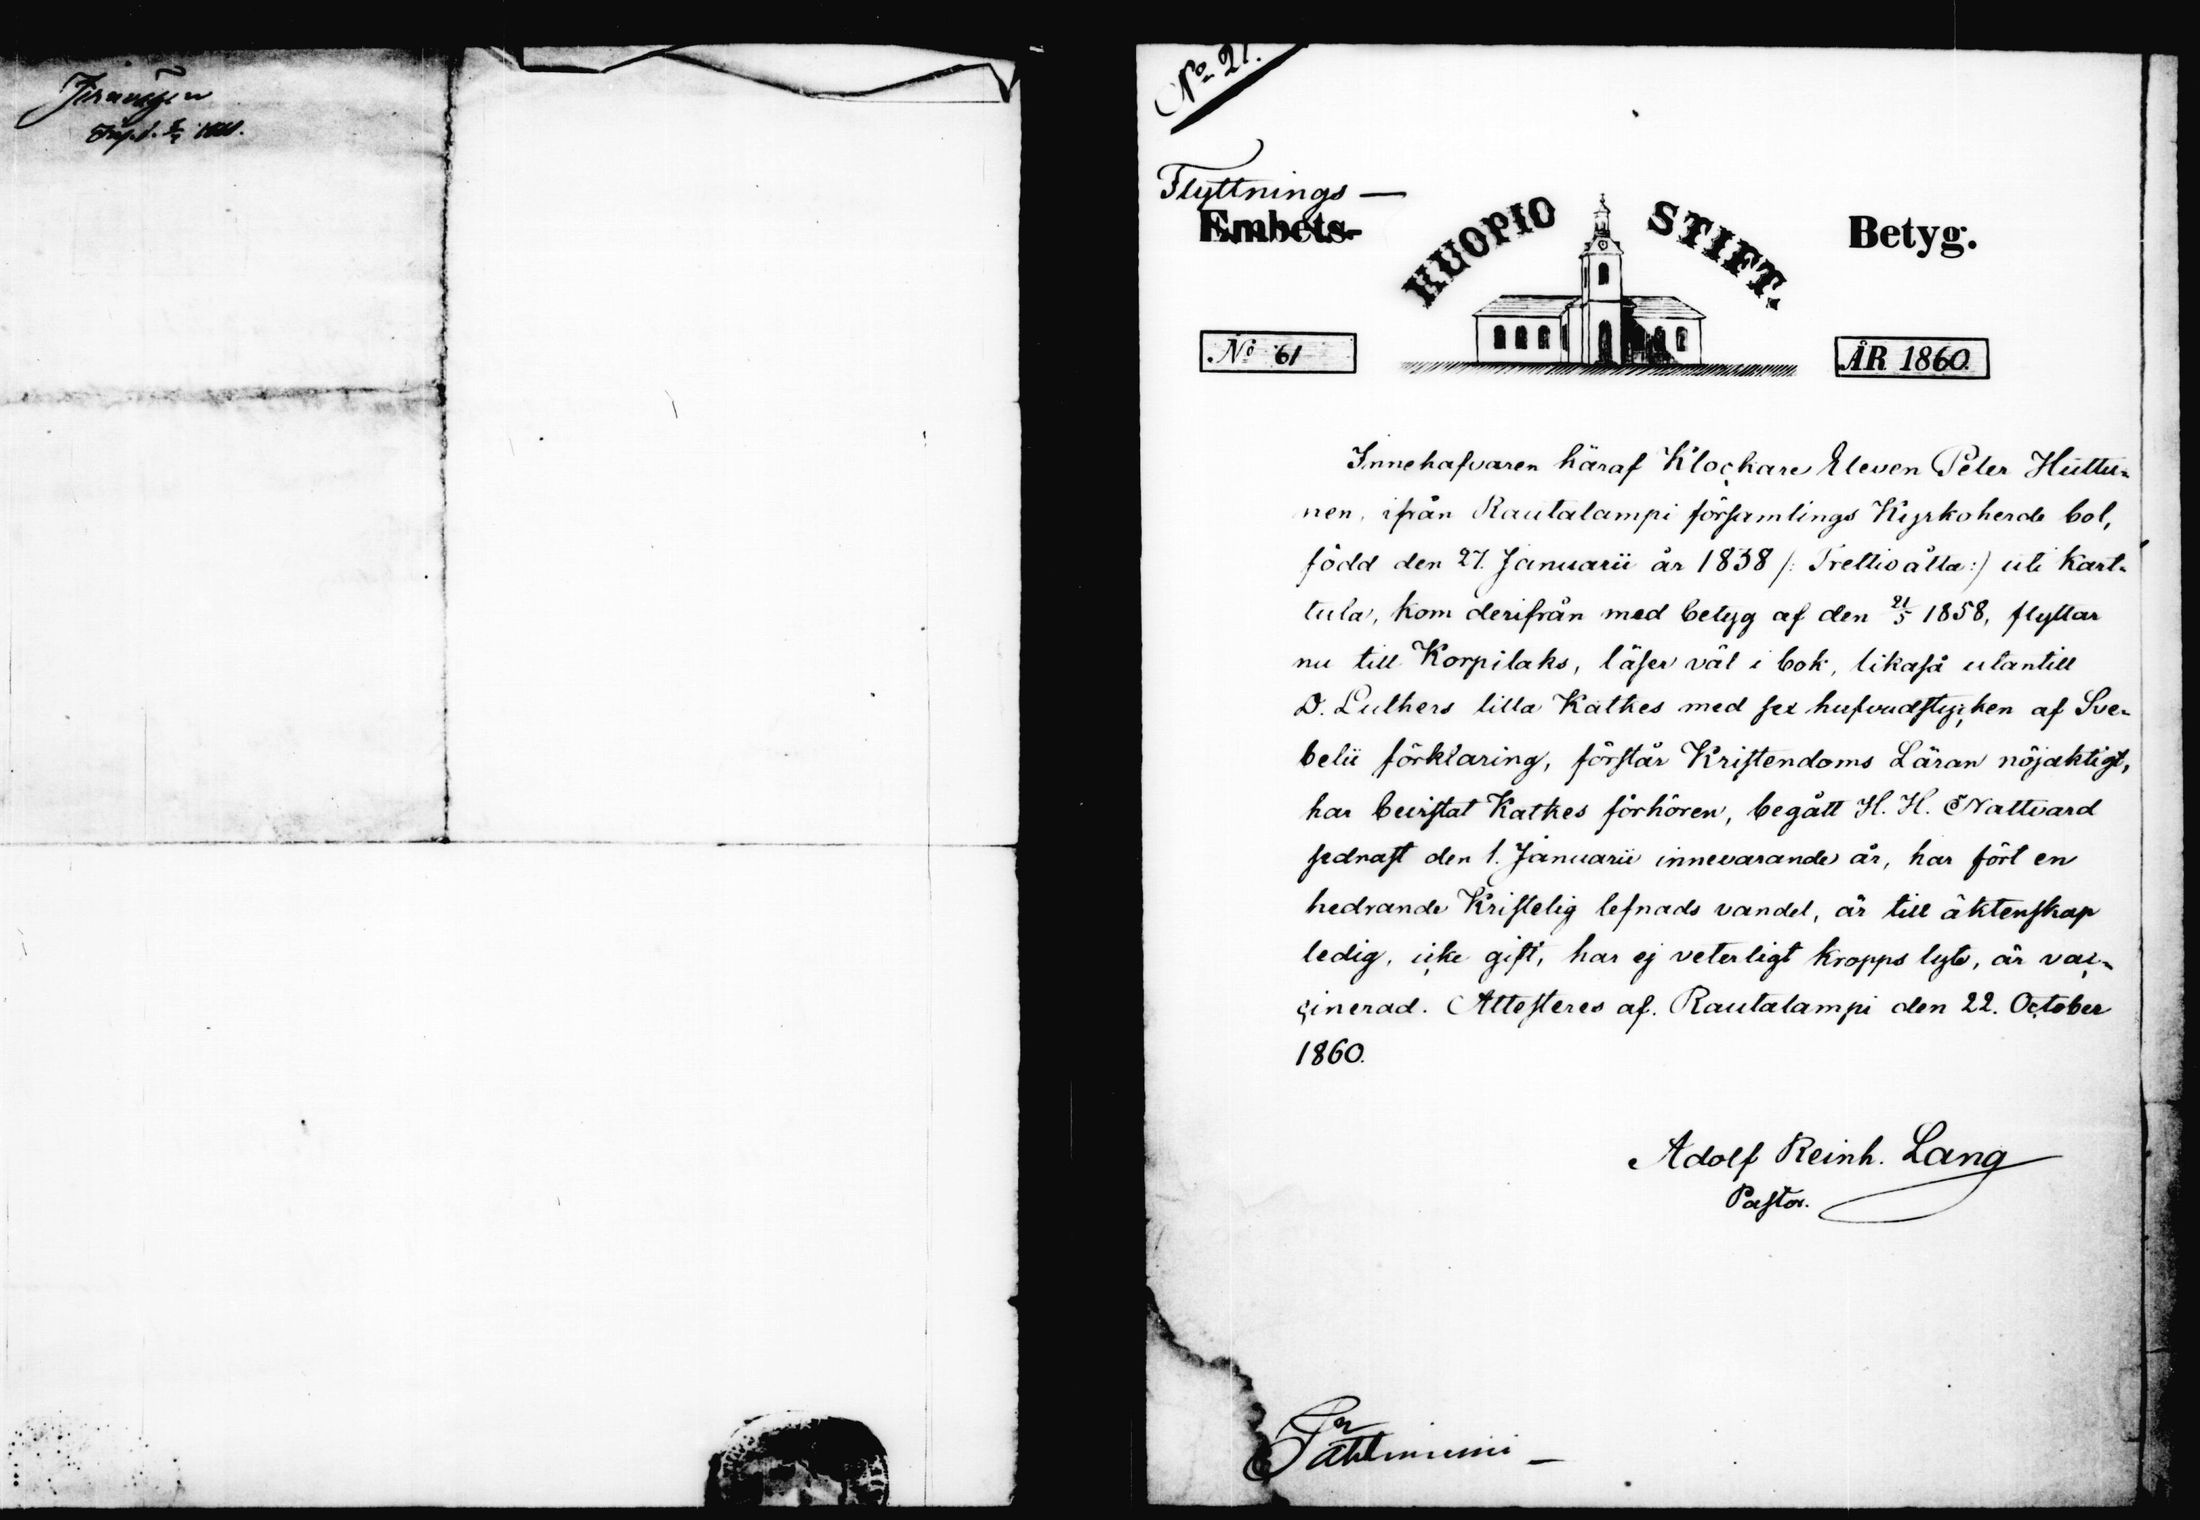 No 21.
Flyttnings —
Embets-
KUOPIO STIFT.
Betyg.
No 61
ÅR 1860.
Innehafvaren häraf Klockare Eleven Peter Huttu-
nen, ifrån Rautalampi församlings Kyrkoherde bol,
född den 27. Januarii år 1838 /: Trettioåtta :/ uti Kart-
tula, kom derifrån med betyg af den 21/5 1858, flyttar
nu till Korpilaks, läser väl i bok, likaså utantill
D. Luthers lilla Katkes med sex hufvudstycken af Sve-
belii förklaring, förstår Kristendoms Läran nöjaktigt,
har bevistat Katkes förhören, begått H. H. Nattvard
sednast den 1. Januarii innevarande år, har fört en
hedrande Kristelig lefnads vandel, är till äktenskap
ledig, icke gift, har ej veterligt kropps lyte, är vac-
cinerad. Attesteres af. Rautalampi den 22. October
1860.
Adolf Reinh. Lang
Pastor.